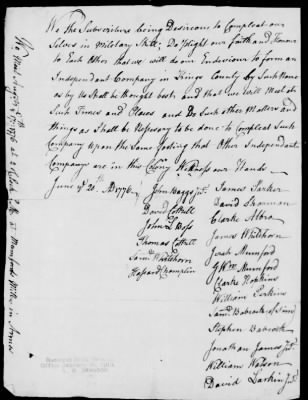 We the Subscribers being Desireous to Compleat our
Selves in Military Skill; Do Plight our Faith and Honour
to Each Other that we will do our Endeavour to form an
Independant Company in Kings County by such Name
as by us Shall be thought best; and that we will Meet at
Such Times and Places and Do Such other Matters and
things as Shall be Necessary to be done to Compleat Such
Company upon the Same footing that Other Independant
Companys are in this Colony Witness our Hands
June ye 20th AD 1776
John Waggs Junr
David Cottrell
John Ross
Thomas Cottrell
Saml Whitehorn
Hassard Champlin
James Parker
David Sharman
Clarke Albro
James Whitehorn
Jirah Mumford
G Wm Mumford
Clarke Hopkins
William Perkins
Saml Babcock of Siml
Stephen Babcock
Jonathan James Junr
William Watson
David Larkin Junr
to Meet August 5th 1776 at 2 oClock P.M. at Mumfords Mills in Arms